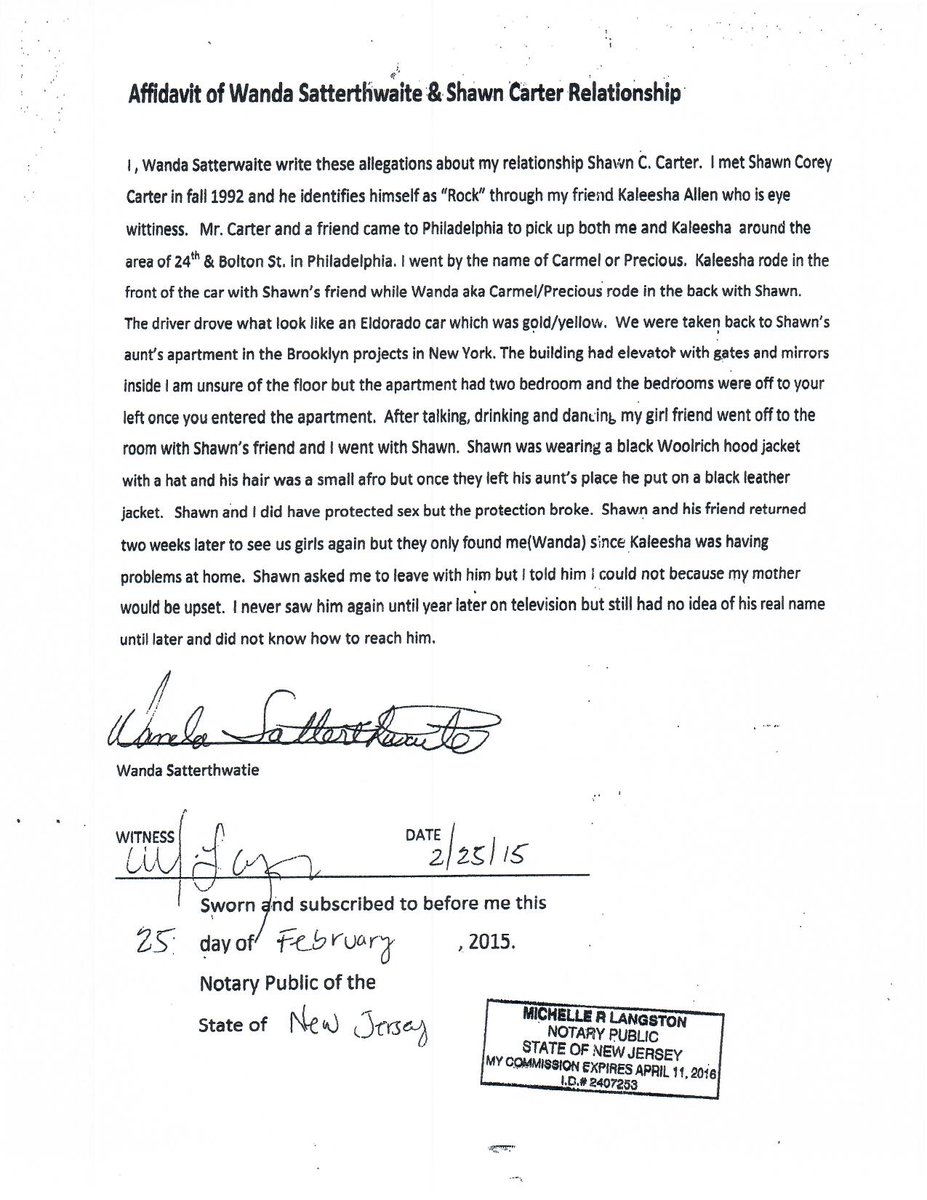 Affidavit of Wanda Satterthwaite & Shawn Carter Relationship
I , Wanda Satterwaite write these allegations about my relationship Shawn C. Carter. I met Shawn Corey
Carter in fall 1992 and he identifies himself as "Rock" through my friend Kaleesha Allen who is eye
wittiness. Mr. Carter and a friend came to Philadelphia to pick up both me and Kaleesha around the
area of 24th & Bolton St. in Philadelphia. I went by the name of Carmel or Precious. Kaleesha rode in the
front of the car with Shawn's friend while Wanda aka Carmel/Precious rode in the back with Shawn.
The driver drove what look like an Eldorado car which was gold/yellow. We were taken back to Shawn's
aunt's apartment in the Brooklyn projects in New York. The building had elevator with gates and mirrors
inside I am unsure of the floor but the apartment had two bedroom and the bedrooms were off to your
left once you entered the apartment. After talking, drinking and dancing my girl friend went off to the
room with Shawn's friend and I went with Shawn. Shawn was wearing a black Woolrich hood jacket
with a hat and his hair was a small afro but once they left his aunt's place he put on a black leather
jacket. Shawn and I did have protected sex but the protection broke. Shawn and his friend returned
two weeks later to see us girls again but they only found me(Wanda) since Kaleesha was having
problems at home. Shawn asked me to leave with him but I told him I could not because my mother
would be upset. I never saw him again until year later on television but still had no idea of his real name
until later and did not know how to reach him.
Wanda Satterthwaite
Wanda Satterthwatie
WITNESS DATE
2/25/15
Sworn and subscribed to before me this
25 day of February , 2015.
Notary Public of the
State of New Jersey
MICHELLE R LANGSTON
NOTARY PUBLIC
STATE OF NEW JERSEY
MY COMMISSION EXPIRES APRIL 11, 2016
I.D.# 2407253